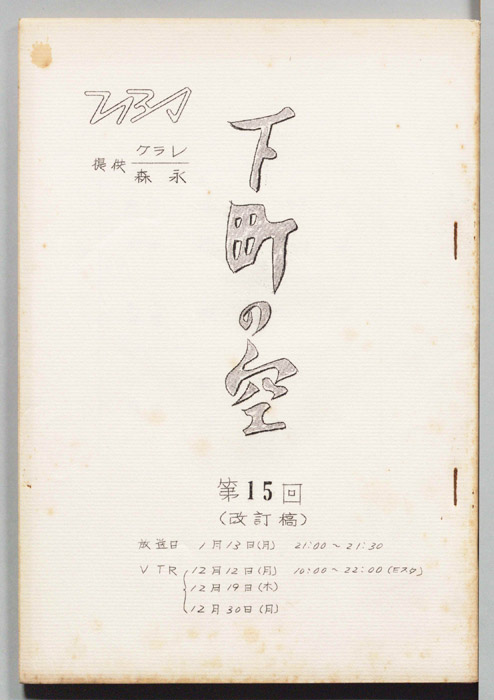 下町の空
提供 クラレ
森永
第15回
(改訂稿)
放送日 1月13日(月) 21:00～21:30
VTR 12月12日(月) 10:00～22:00(モスタ)
12月19日(木)
12月30日(月)